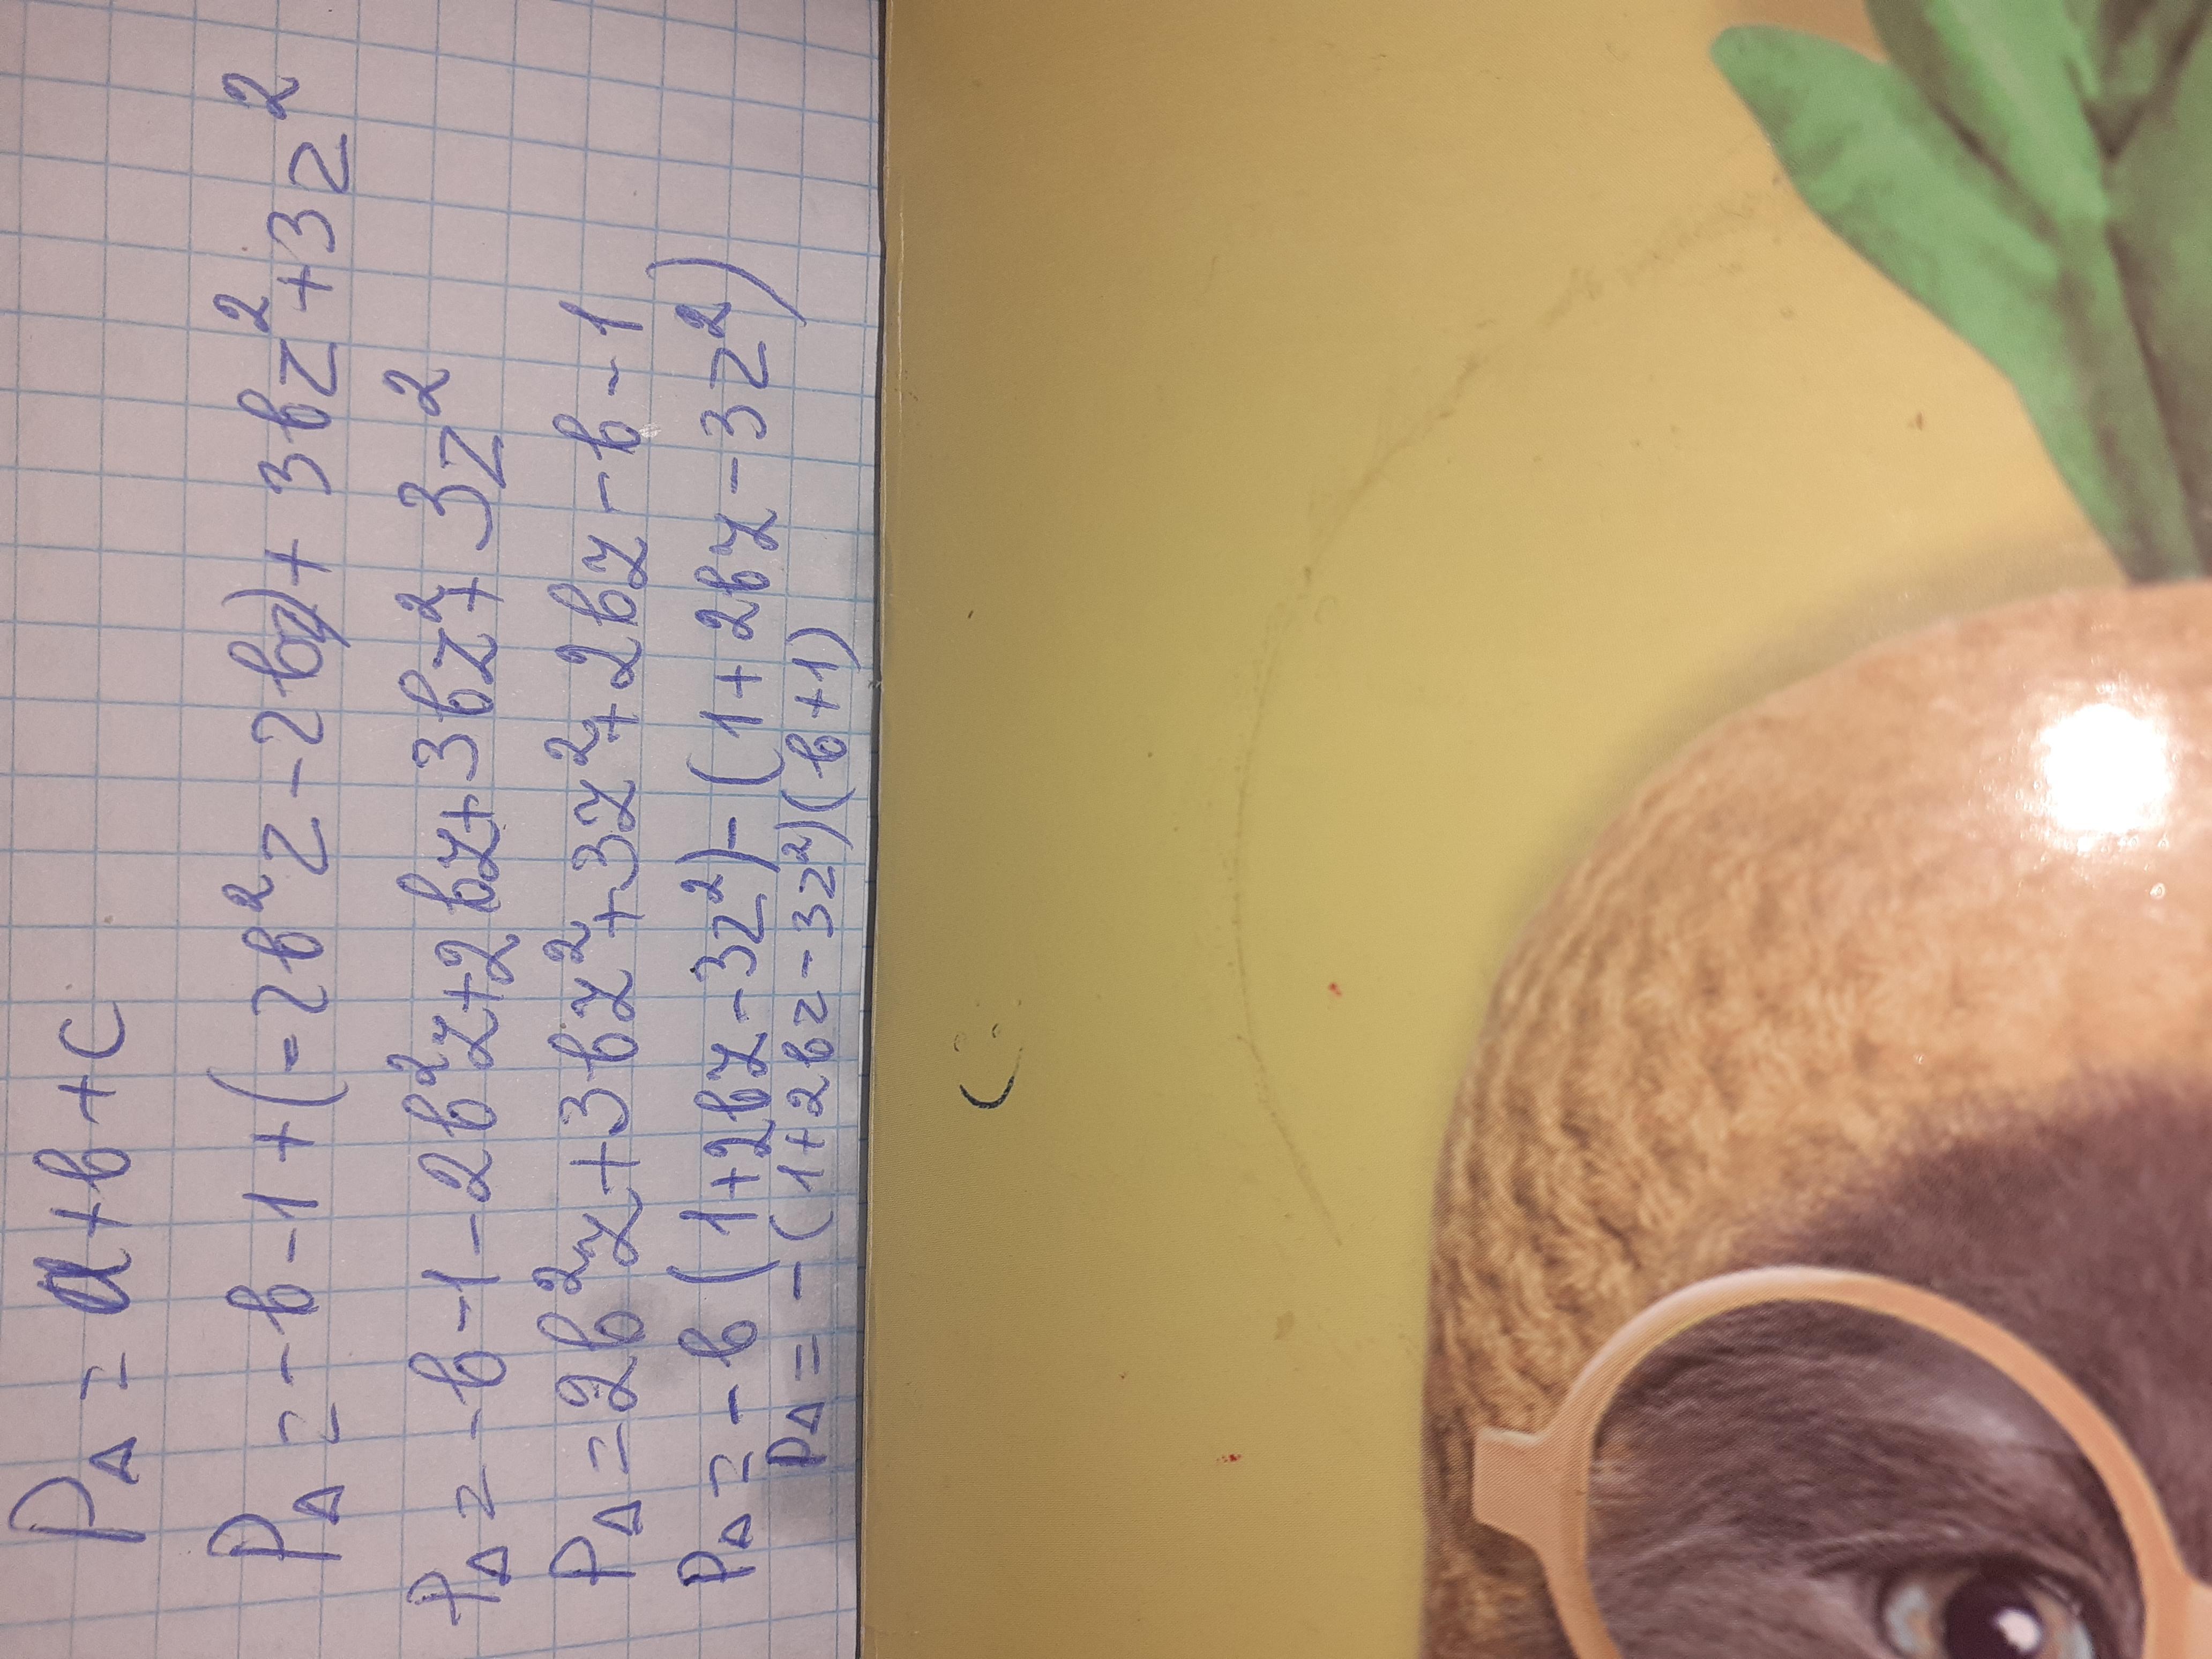 P△ = a + b + c
P△ = -b - 1 + (-2b²z - 2bz) + 3bz² + 3z²
P△ = -b - 1 - 2b²z + 2bz + 3bz² + 3z²
P△ = 2b²z + 3bz² + 3z² + 2bz - b - 1
P△ = -b (1 + 2bz - 3z²) - (1 + 2bz - 3z²)
P△ = -(1 + 2bz - 3z²)(b + 1)